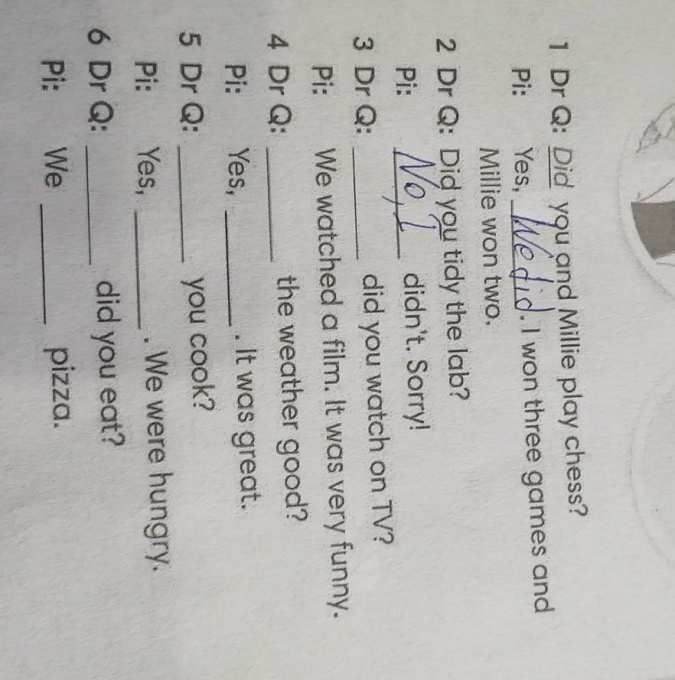 1 Dr Q: Did you and Millie play chess?
Pi: Yes, We did. I won three games and
Millie won two.
2 Dr Q: Did you tidy the lab?
Pi: No, I didn't. Sorry!
3 Dr Q: ________ did you watch on TV?
Pi: We watched a film. It was very funny.
4 Dr Q: ________ the weather good?
Pi: Yes, ________. It was great.
5 Dr Q: ________ you cook?
Pi: Yes, ________. We were hungry.
6 Dr Q: ________ did you eat?
Pi: We ________ pizza.